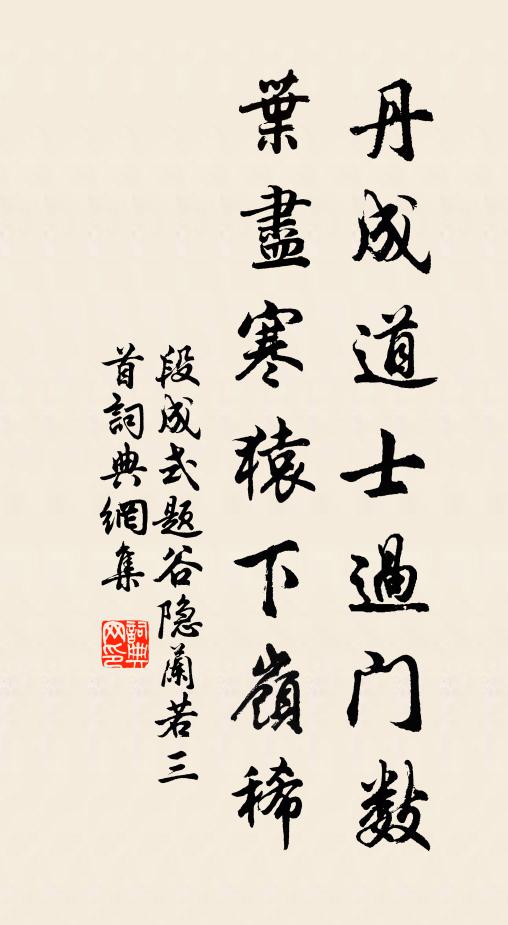 丹成道士過门数
葉盡寒猿下嶺稀
段成式题谷隐蘭若三
首詞典網集
詞典网印